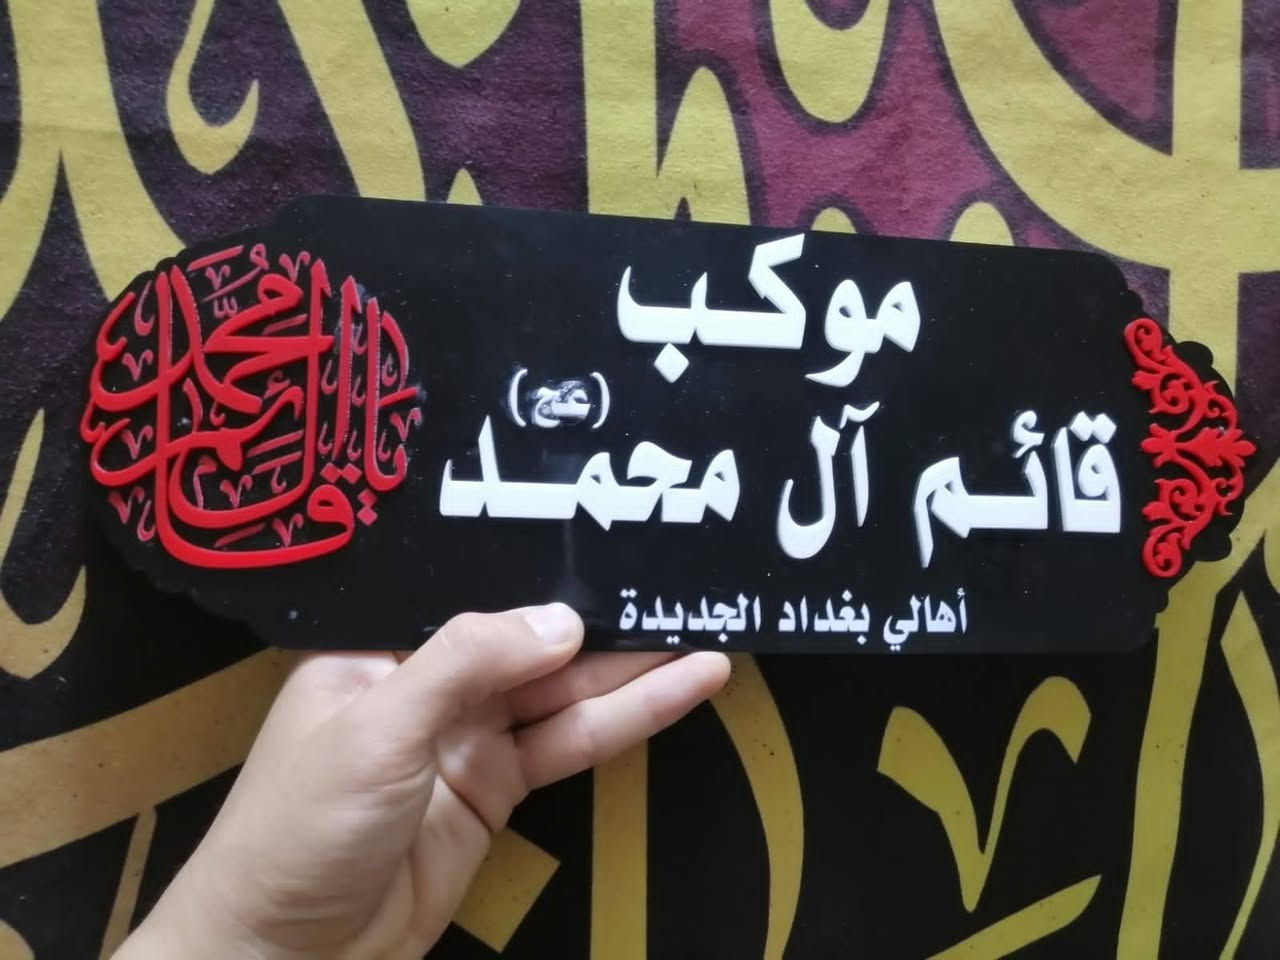 موكب
قائم آل محمّد (عج)
أهالي بغداد الجديدة
يا قائم آل محمد